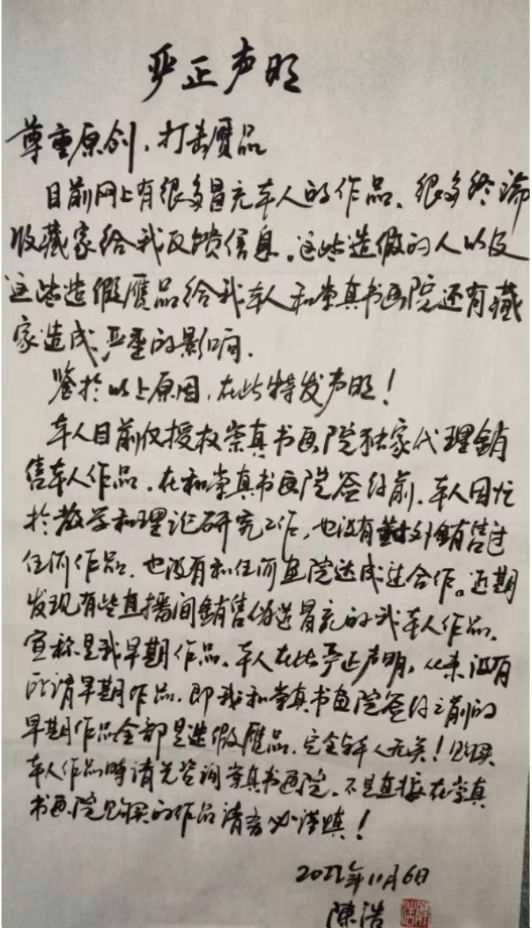 严正声明
尊重原创，打击赝品
目前网上有很多冒充本人的作品、很多终端
收藏家给我反馈信息。这些造假的人以及
这些造假赝品给我本人和崇真书画院还有藏
家造成严重的影响.
鉴於以上原因，在此特发声明！
本人目前仅授权崇真书画院独家代理銷
售本人作品。在和崇真书画院签约前，本人因忙
於教学和理论研究工作，也没有對外銷售过
任何作品.也没有和任何画院达成过合作。近期
发现有些直播间銷售伪造冒充的我本人作品.
宣称是我早期作品。本人在此严正声明，从来没有
所谓早期作品.即我和崇真书画院签约之前的
早期作品全部是造假赝品.完全与本人无关！购买
本人作品時请先咨询崇真书画院。不是直接在崇真
书画院购买的作品请务必谨慎！
2022年11月6日
陳浩